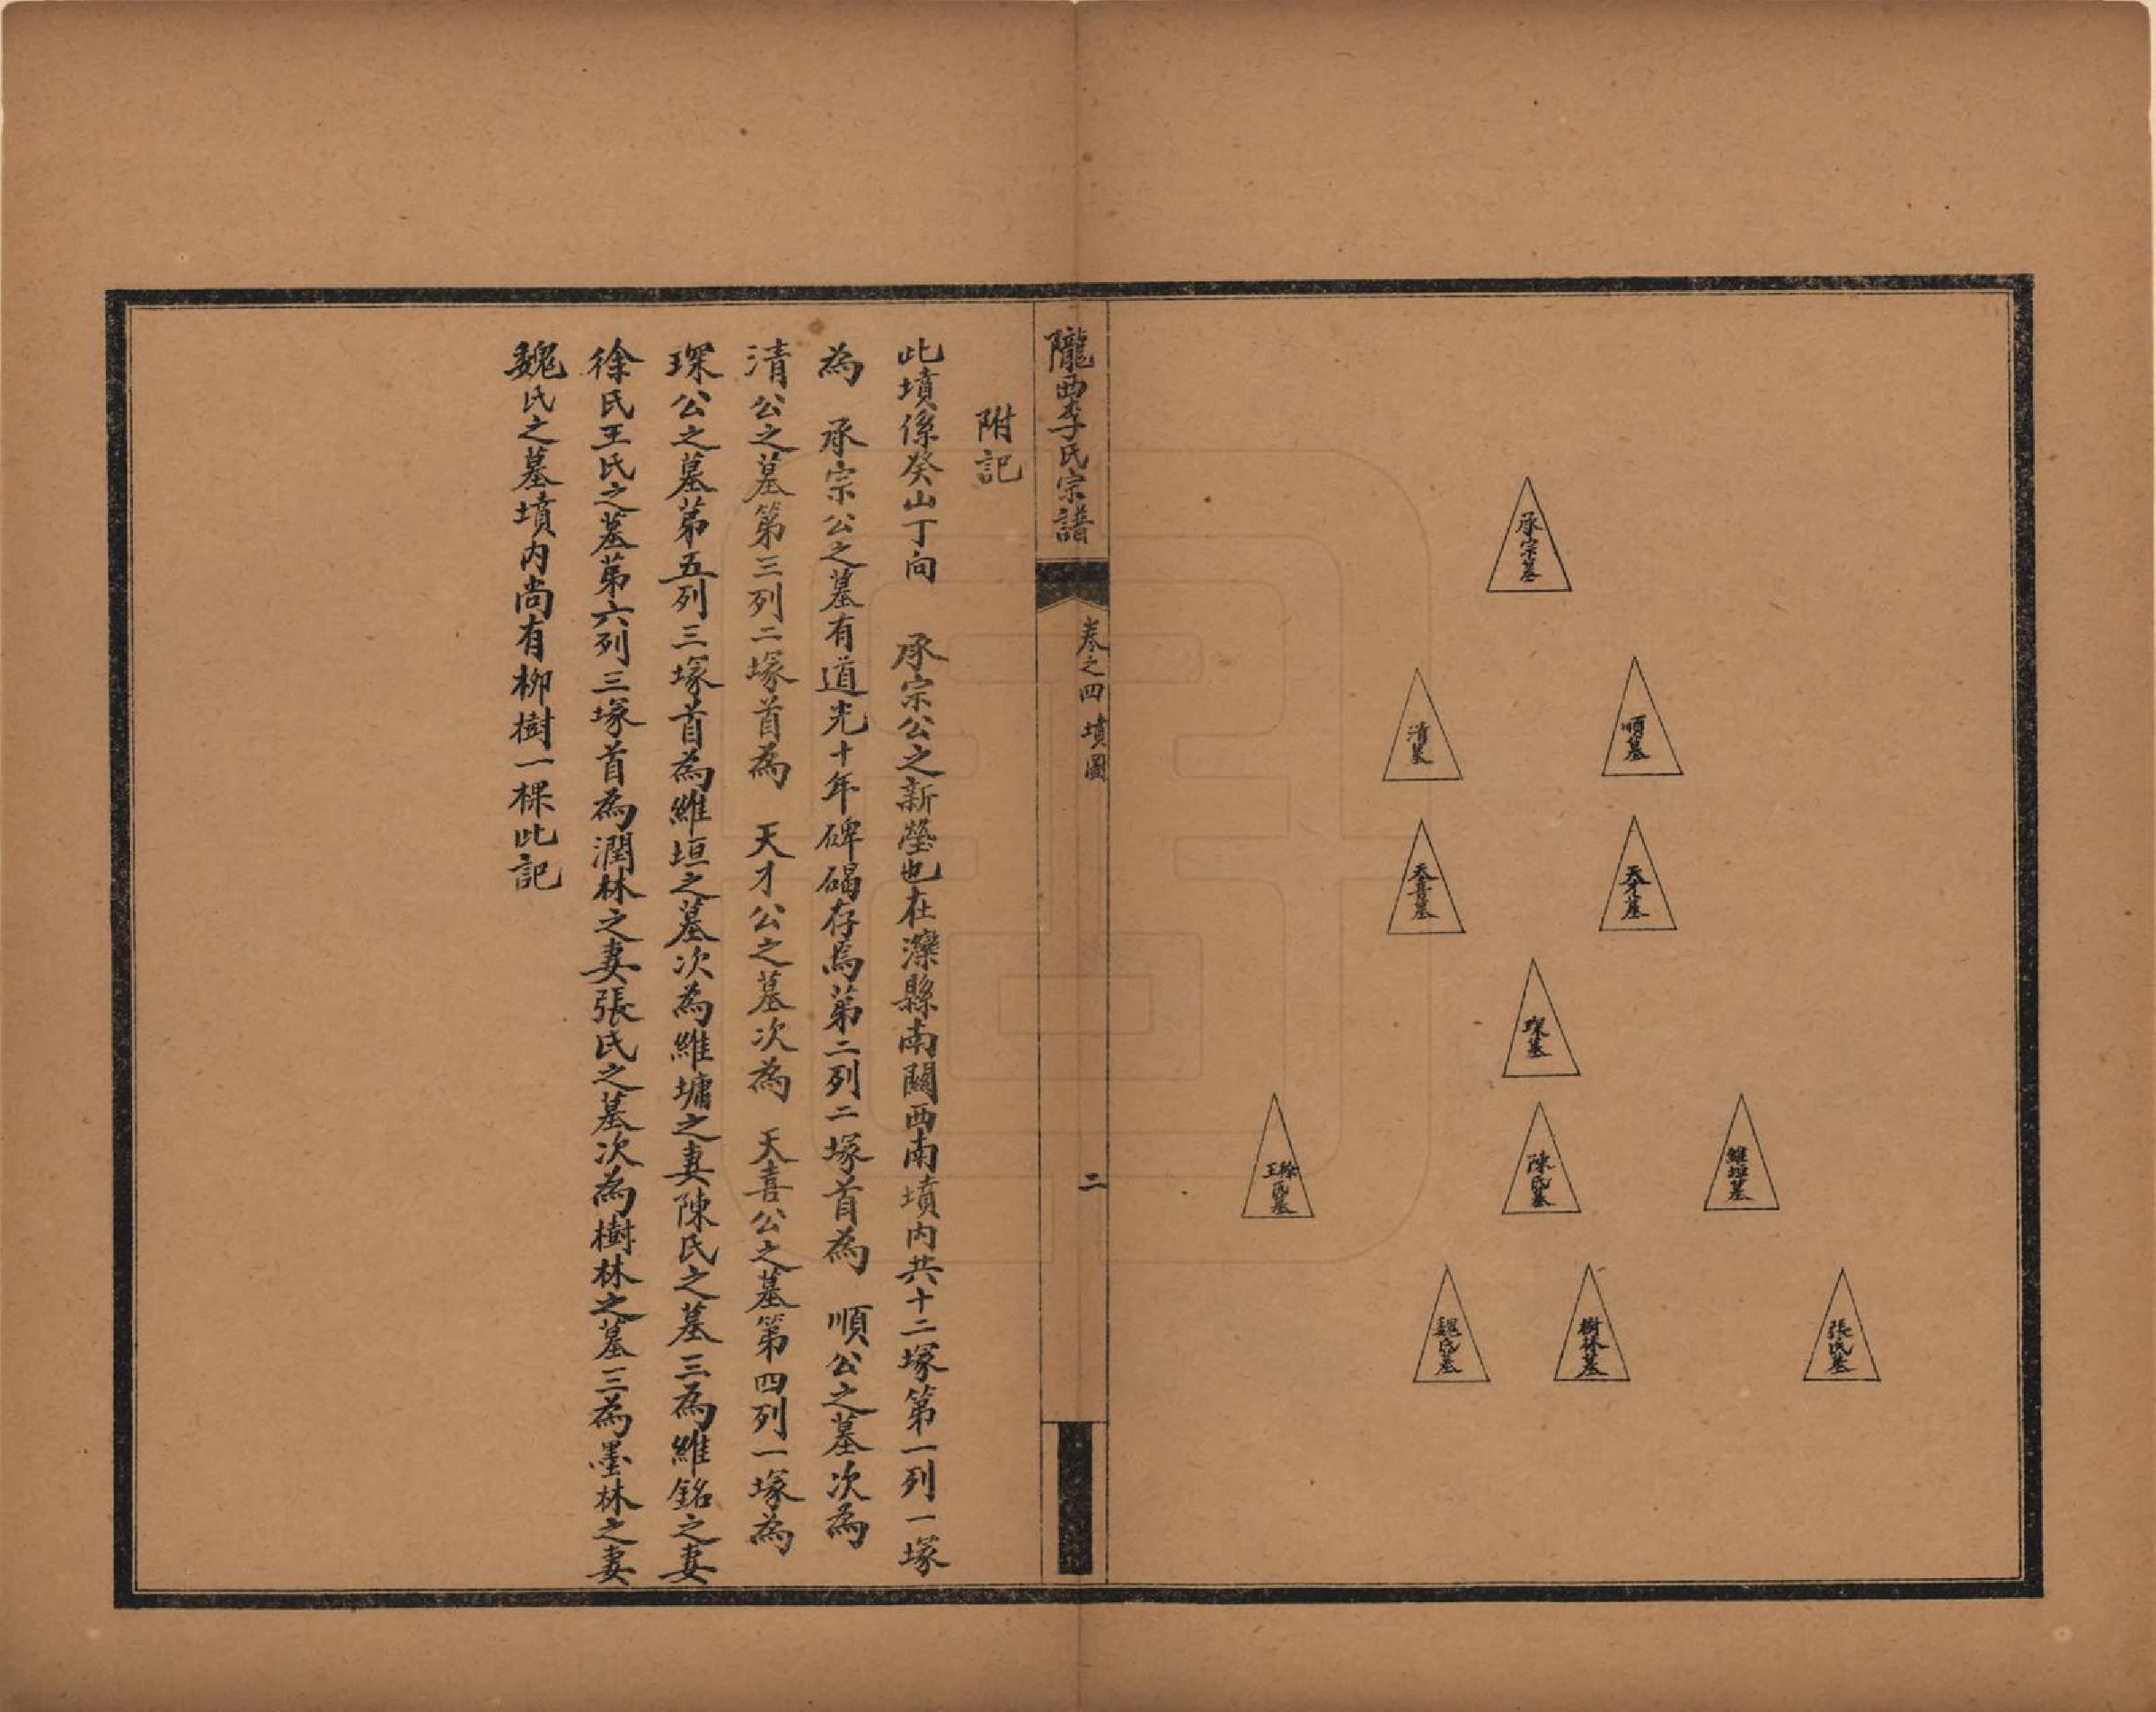 承宗墓
順墓
清墓
天才墓
天喜墓
琛墓
維垣墓
陳氏墓
徐王氏墓
張氏墓
樹林墓
魏氏墓
隴西李氏宗譜
卷之四 墳圖
二
附記
此墳係癸山丁向 承宗公之新塋也在灤縣南關西南墳内共十二塚第一列一塚
為 承宗公之墓有道光十年碑碣存焉第二列二塚首為 順公之墓次為
清公之墓第三列二塚首為 天才公之墓次為 天喜公之墓第四列一塚為
琛公之墓第五列三塚首為維垣之墓次為維墉之妻陳氏之墓三為維銘之妻
徐氏王氏之墓第六列三塚首為潤林之妻張氏之墓次為樹林之墓三為墨林之妻
魏氏之墓墳内尚有柳樹一棵此記